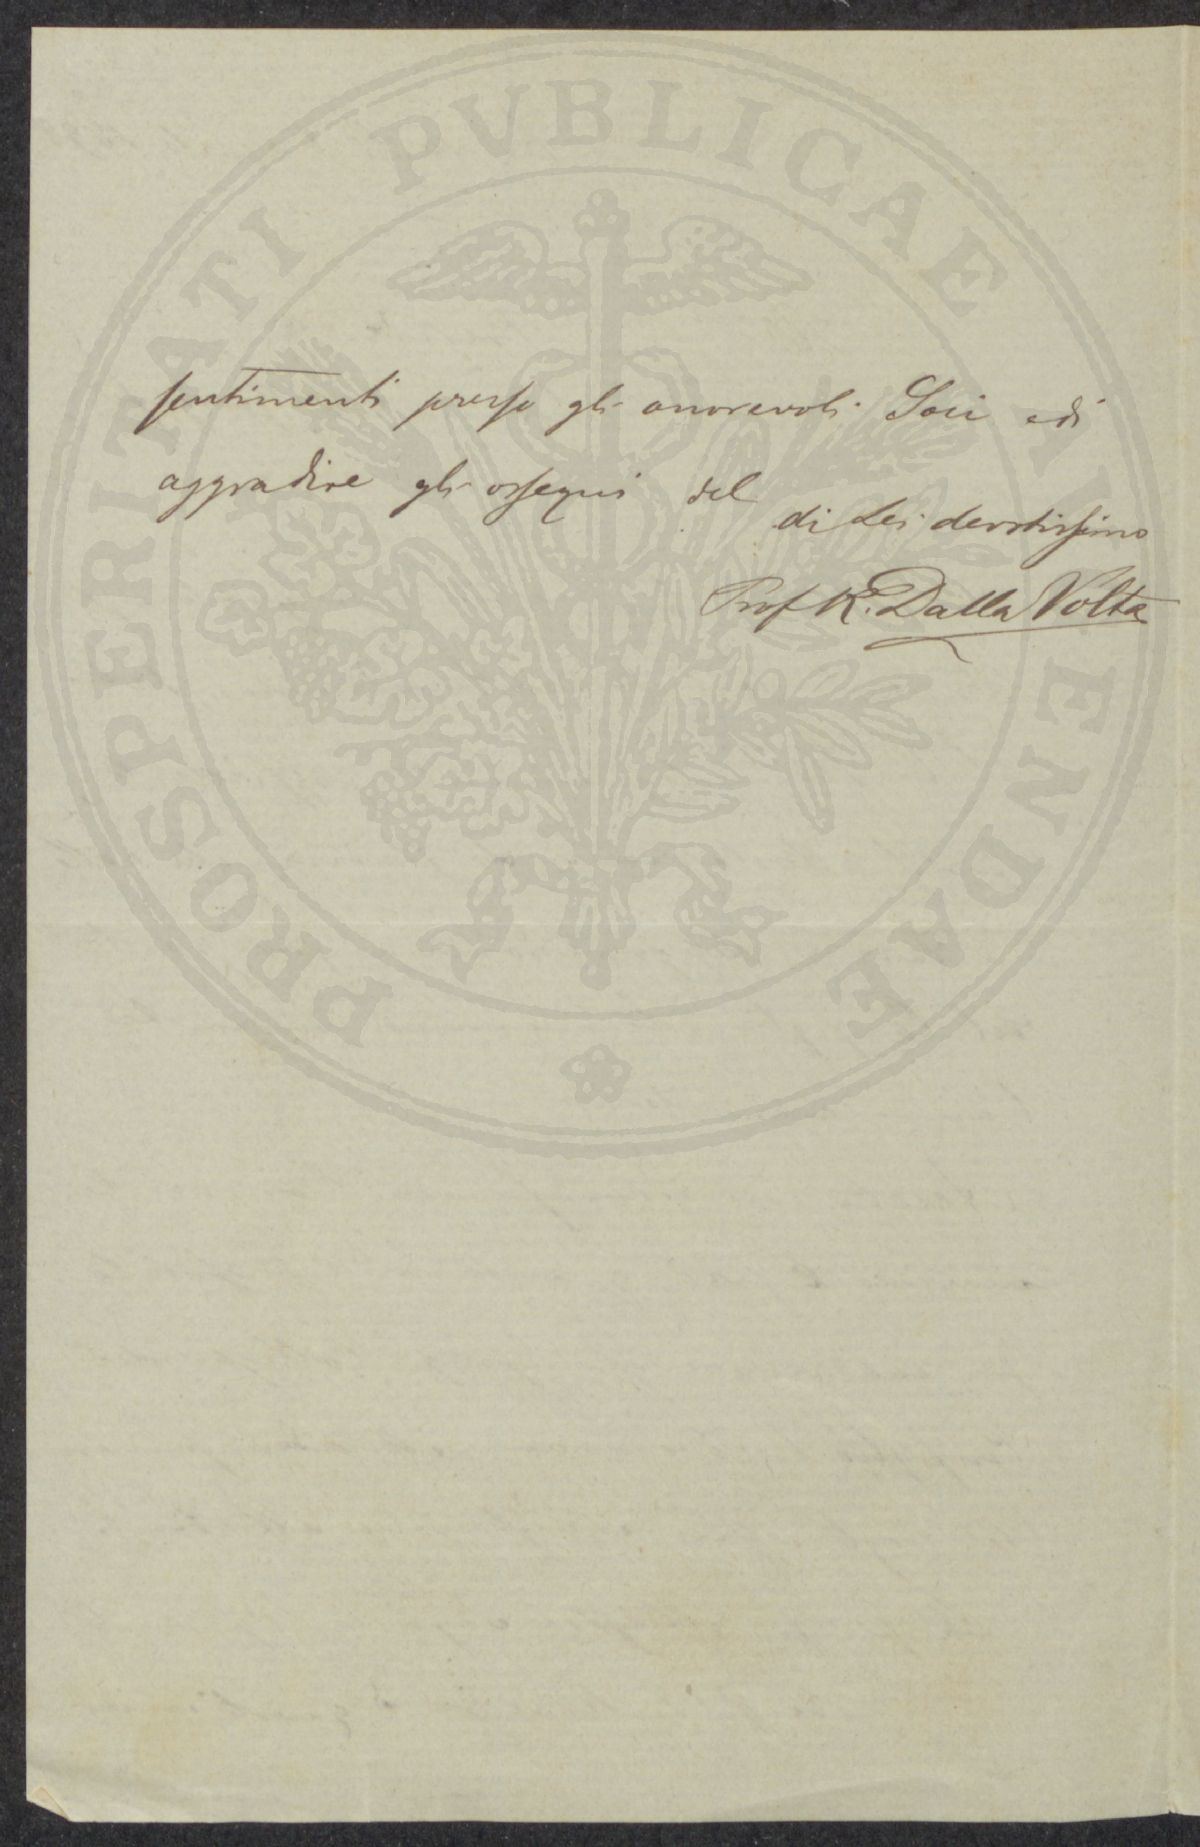 sentimenti presso gli onorevoli Soci e di
aggradire gli ossequi del
di Lei devotissimo
Prof R. Dalla Volta
PROSPERITATI PVBLICAE AVGENDAE